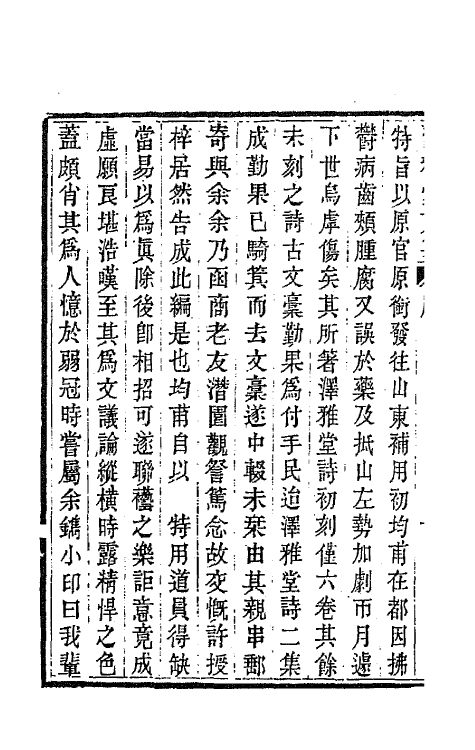 特旨以原官原銜發往山東補用初均甫在都因拂
鬱病齒頰腫腐又誤於藥及抵山左勢加劇帀月遽
下世烏虖傷矣其所著澤雅堂詩初刻僅六卷其餘
未刻之詩古文稾勤果爲付手民迨澤雅堂詩二集
成勤果已騎箕而去文稾遂中輟未栞由其親串郵
寄與余余乃函商老友潛園觀詧篤念故交慨許授
梓居然告成此編是也均甫自以　特用道員得缺
當易以爲眞除後卽相招可遂聯襼之樂詎意竟成
虛願良堪浩嘆至其爲文議論縱橫時露精悍之色
蓋頗肖其爲人憶於弱冠時嘗屬余鐫小印曰我輩